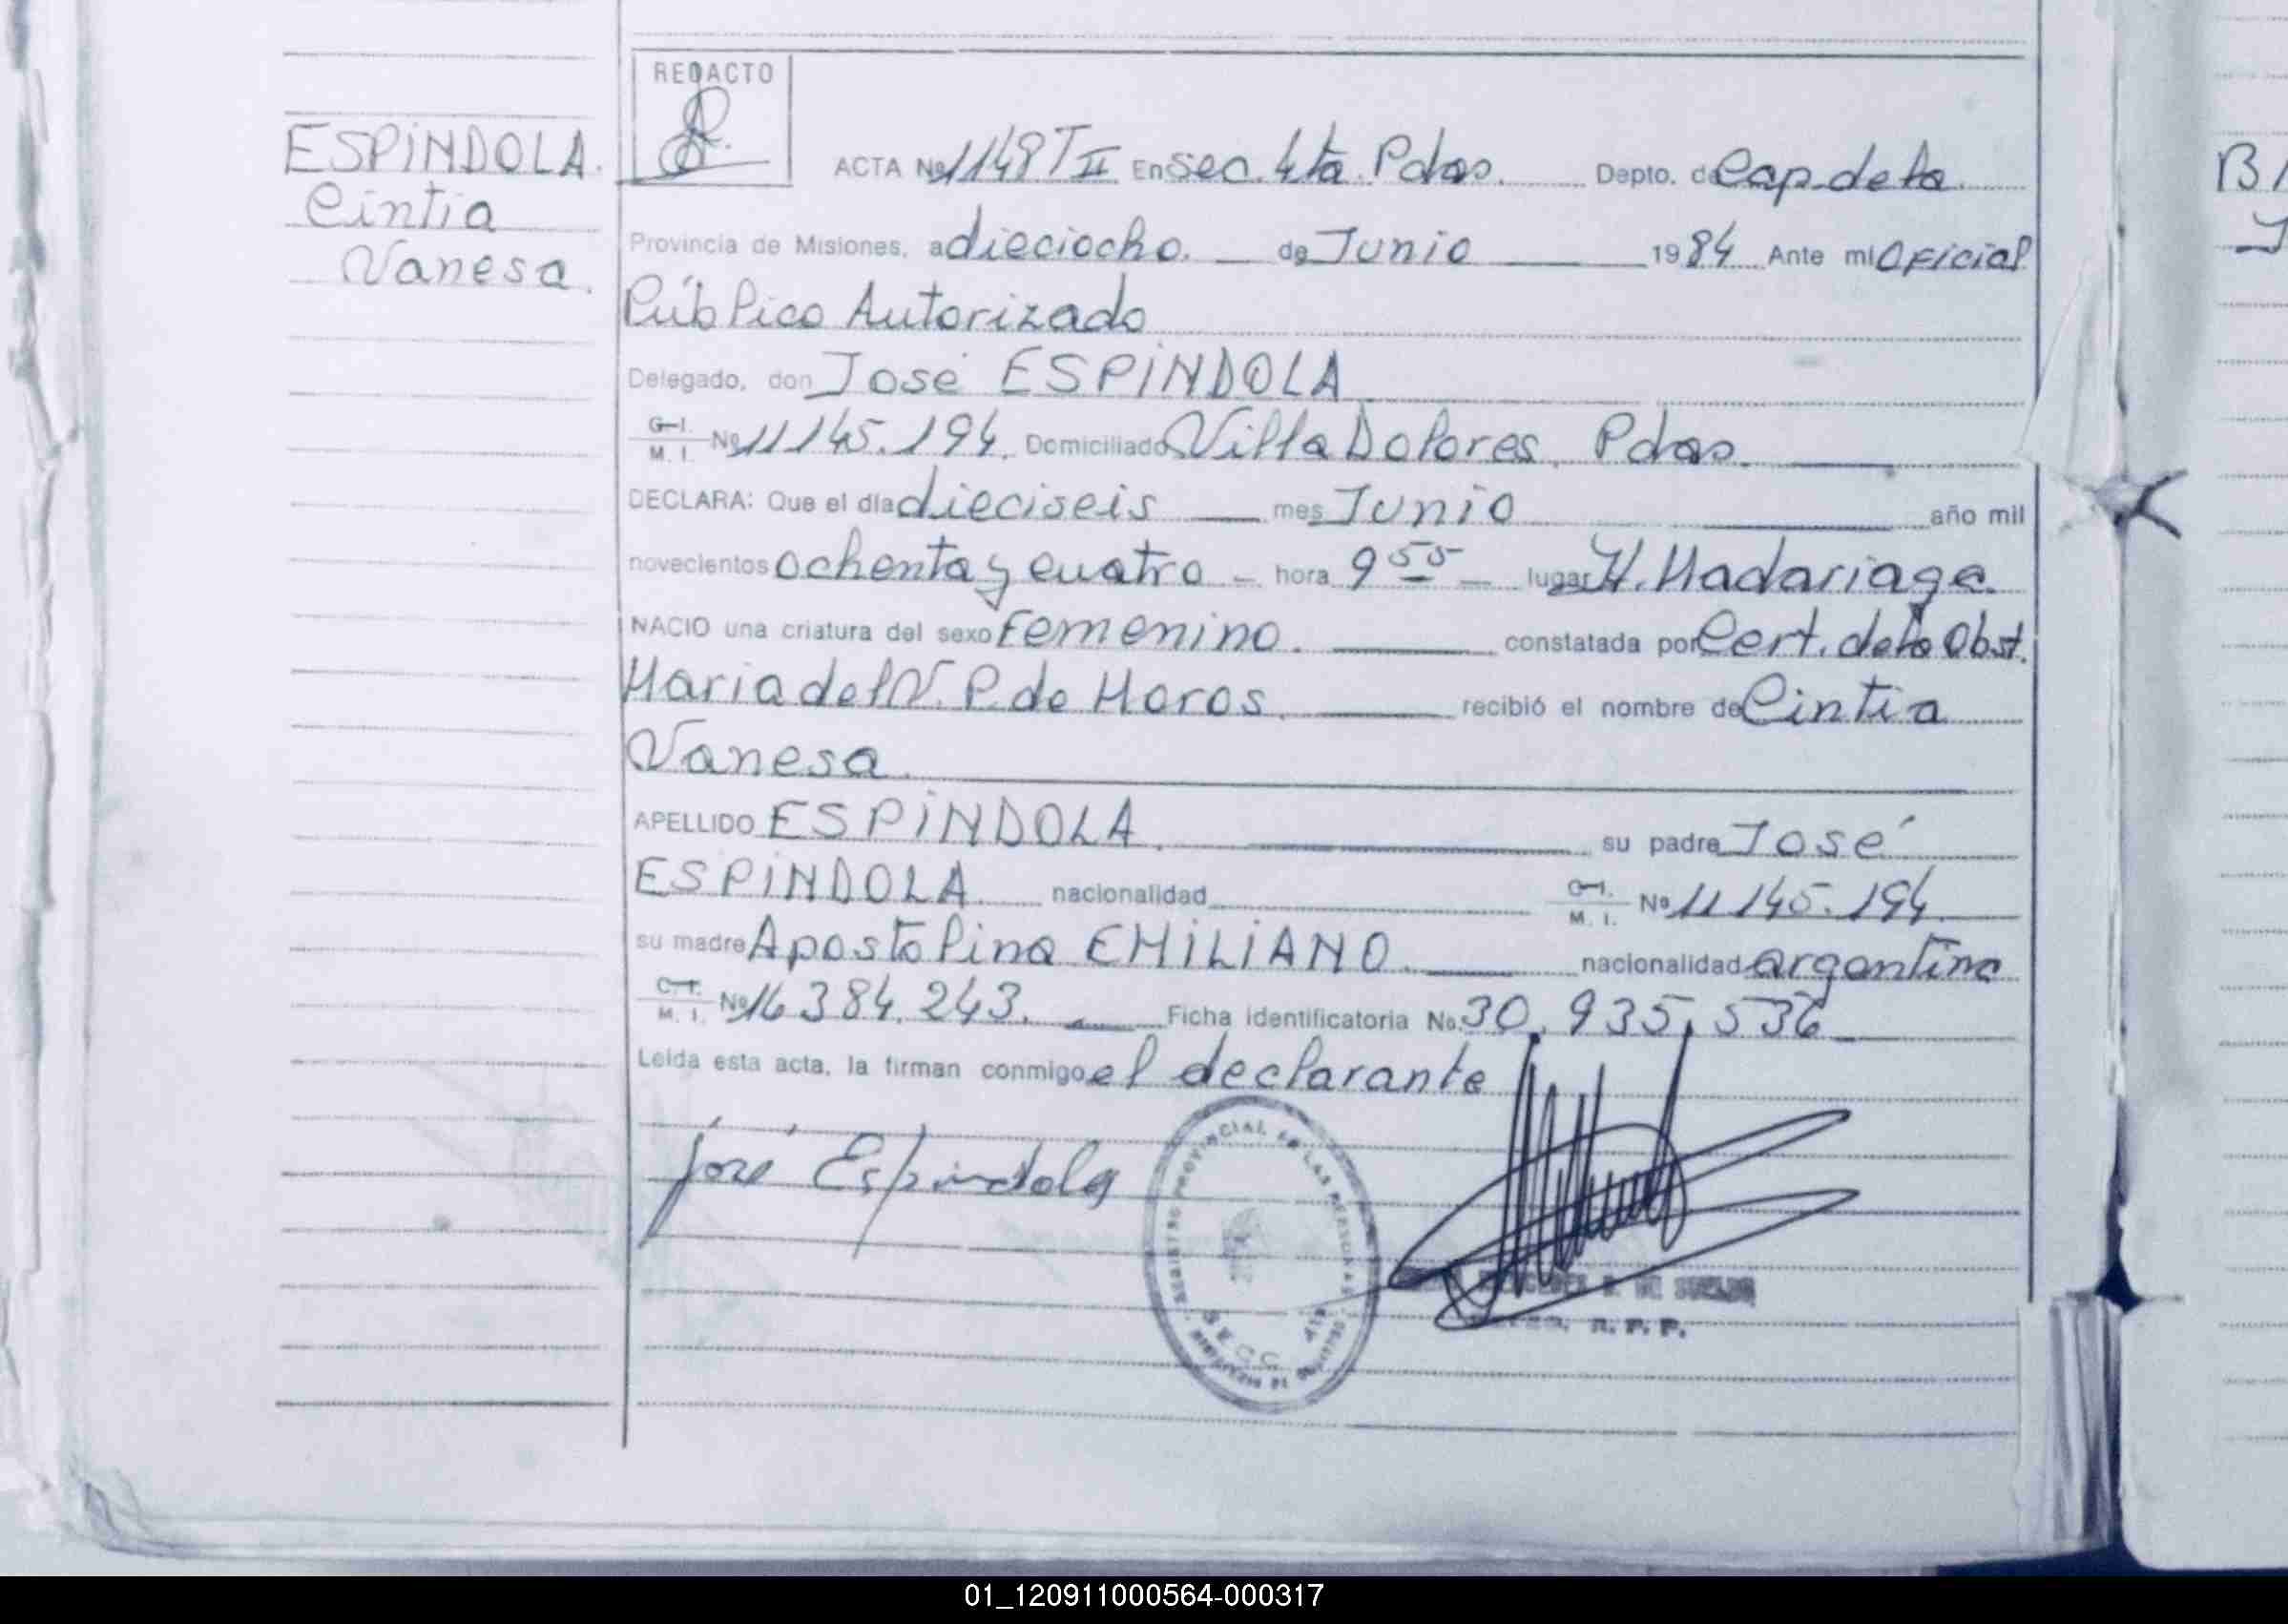 REDACTO
ESPÍNDOLA.
Cintia
Vanesa.
ACTA Nº 1148 T II En sec. 4ta. Pdas. Depto. de Cap. de la
Provincia de Misiones, a dieciocho. de Junio 1984 Ante mi Oficial
Público Autorizado
Delegado, don José ESPÍNDOLA
C. I. M. I. Nº 11.145.194. Domiciliado Villa Dolores, Pdas.
DECLARA: Que el día dieciseis mes Junio año mil
novecientos ochenta y cuatro hora 9 55 lugar H. Madariaga.
NACIO una criatura del sexo Femenino. constatada por Cert. de la Obst.
Maria del V. P. de Moros. recibió el nombre de Cintia
Vanesa.
APELLIDO ESPÍNDOLA. su padre José
ESPÍNDOLA nacionalidad C. I. M. I. Nº 11.145.194.
su madre Apostolina EMILIANO. nacionalidad argentina
C. I. M. I. Nº 16.384.243. Ficha identificatoria No. 30.935.536
Leída esta acta, la firman conmigo el declarante
José Espindola
REGISTRO PROVINCIAL DE LAS PERSONAS
SECC. 4ta
R. P. P.
B
01_120911000564-000317